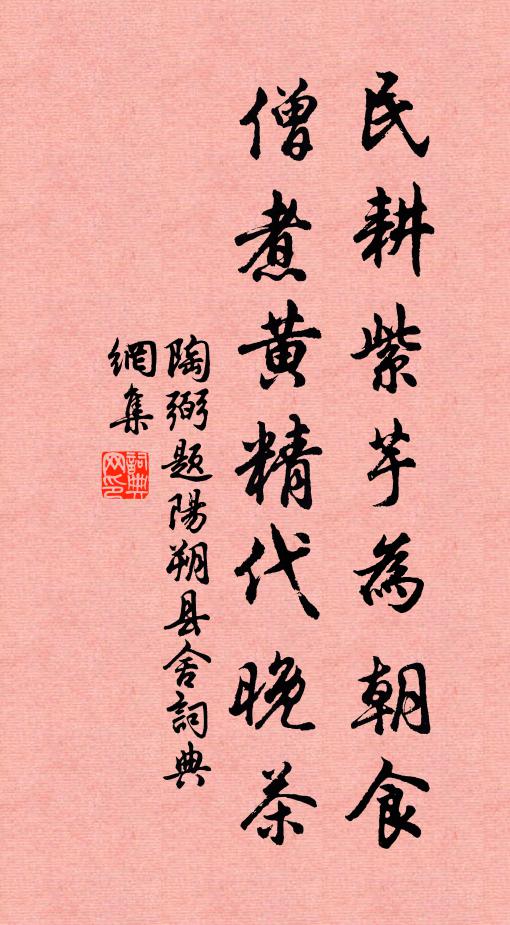 民耕紫芋為朝食
僧煮黄精代晚茶
陶弼题陽朔县舍詞典
網集
詞典
网印